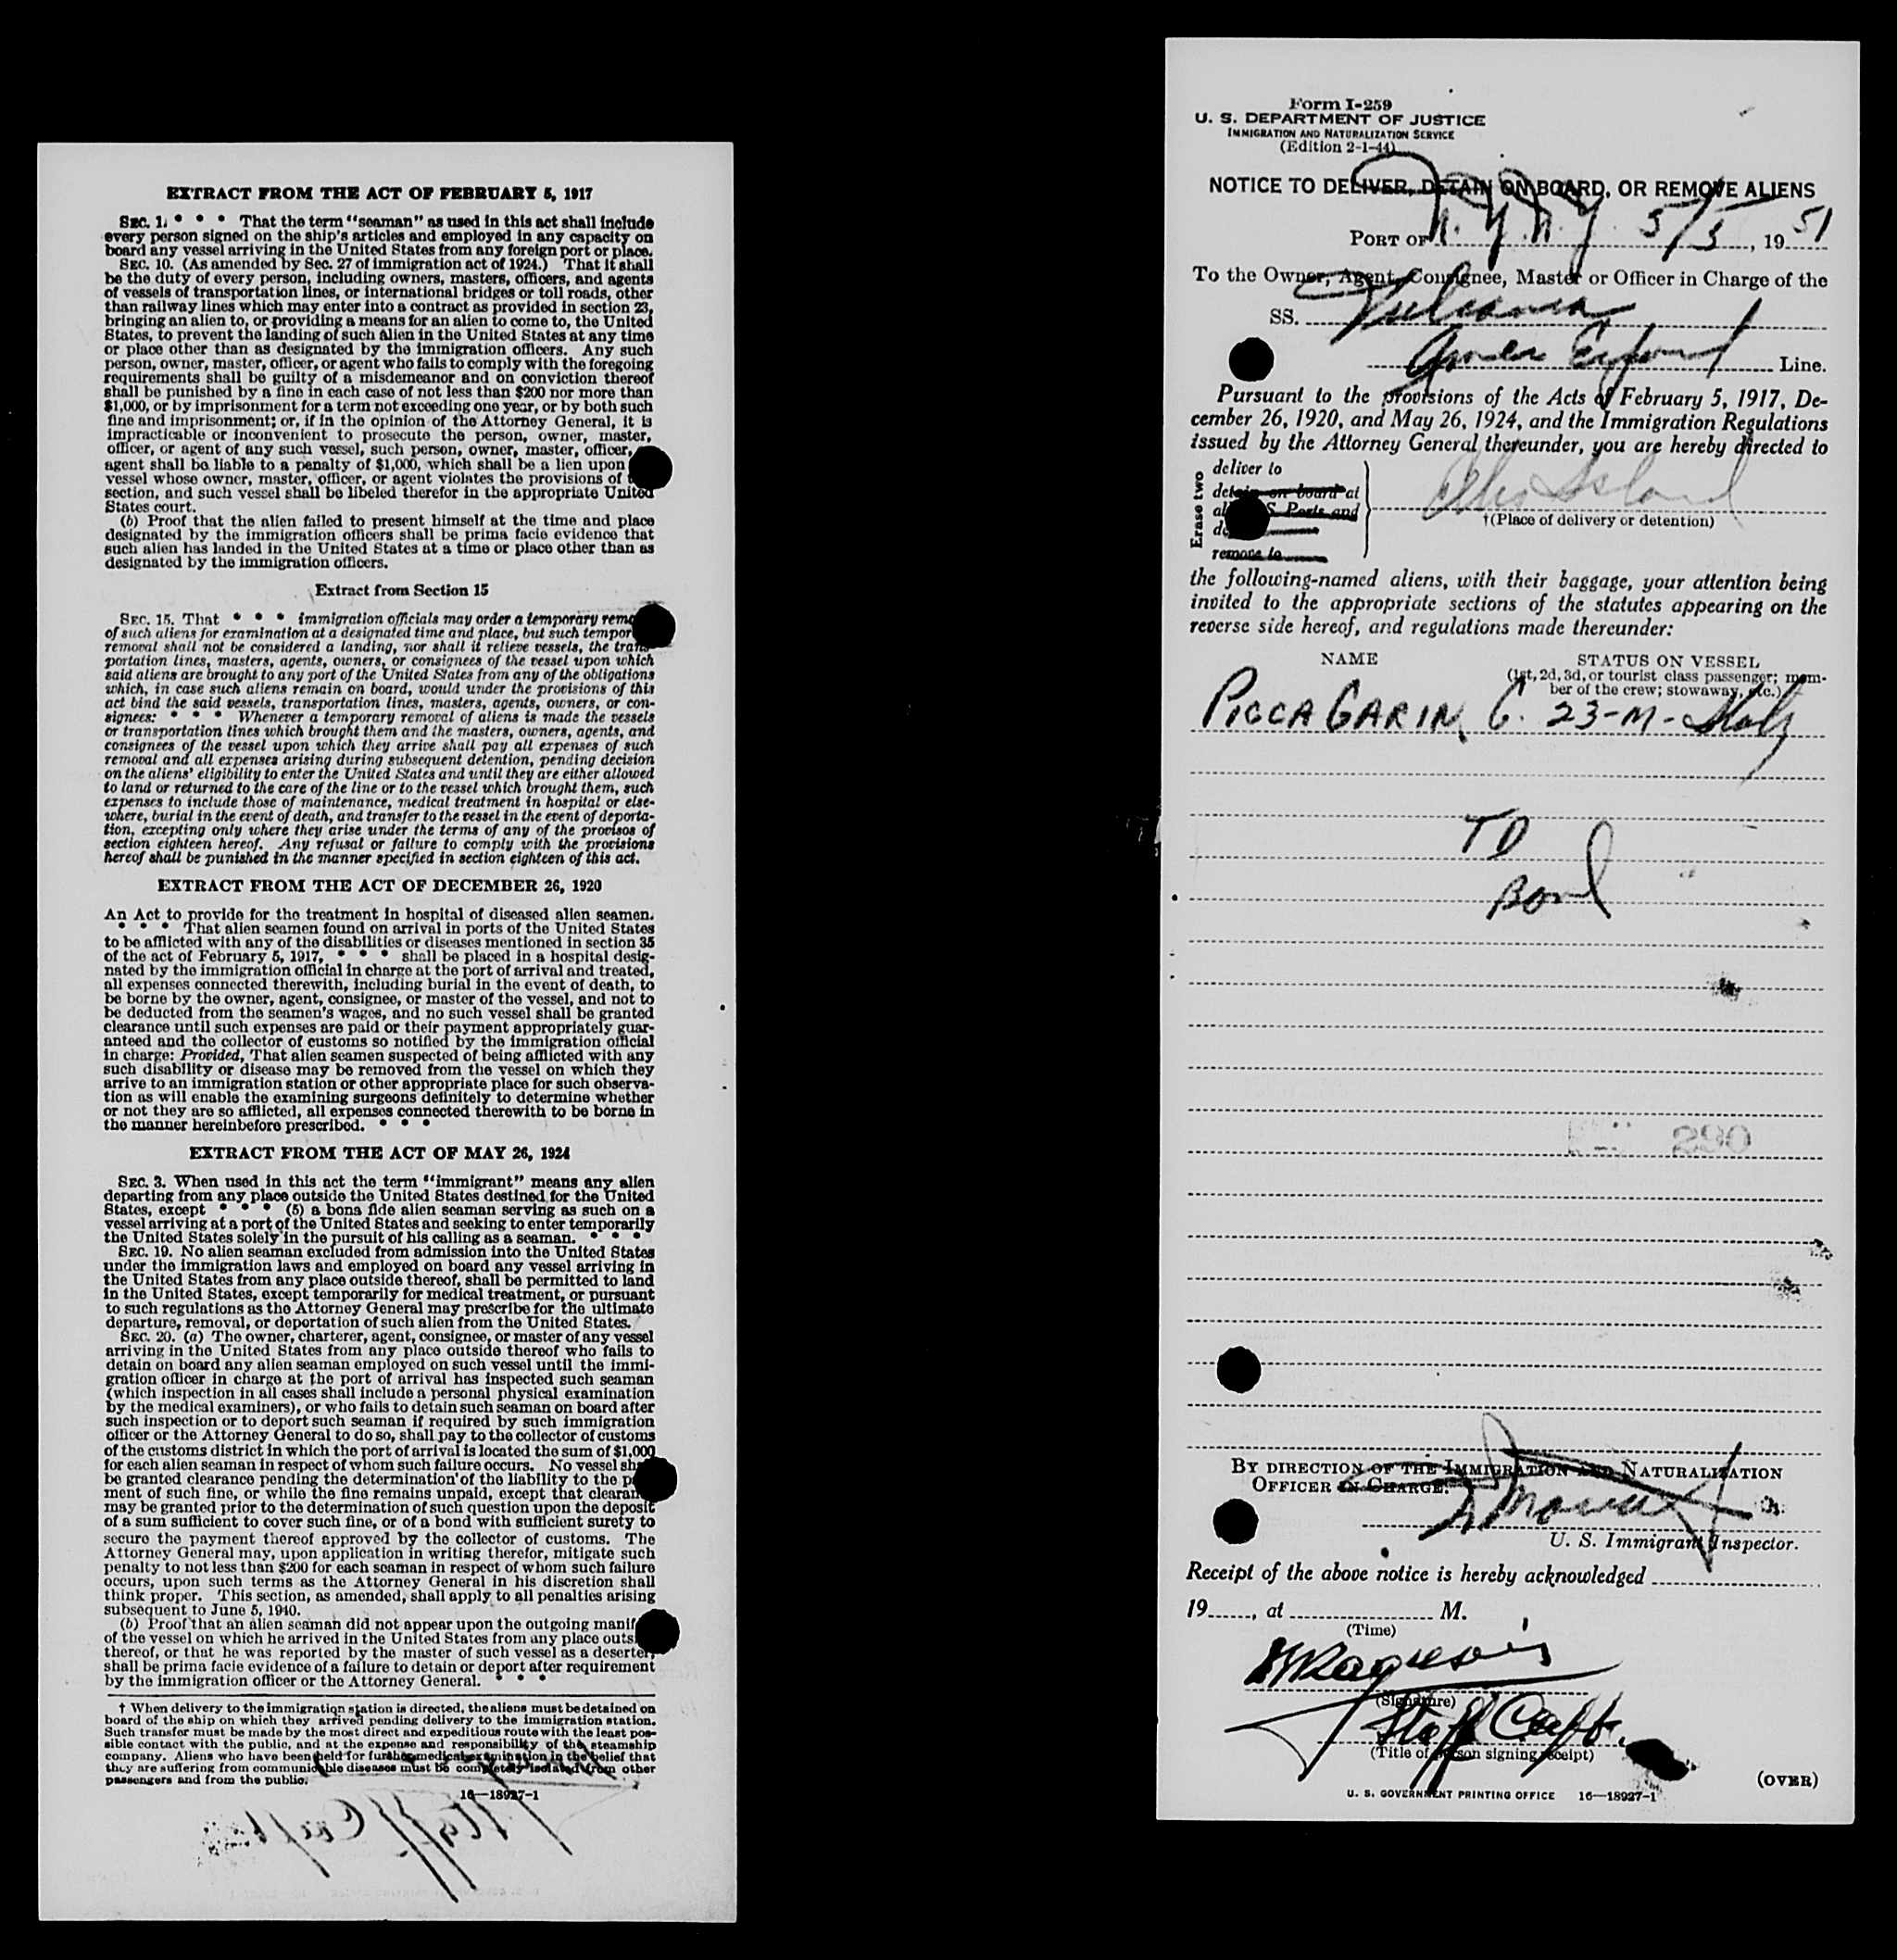 EXTRACT FROM THE ACT OF FEBRUARY 5, 1917
SEC. 1. * * * That the term "seaman" as used in this act shall include
every person signed on the ship's articles and employed in any capacity on
board any vessel arriving in the United States from any foreign port or place.
SEC. 10. (As amended by Sec. 27 of immigration act of 1924.) That it shall
be the duty of every person, including owners, masters, officers, and agents
of vessels of transportation lines, or international bridges or toll roads, other
than railway lines which may enter into a contract as provided in section 23,
bringing an alien to, or providing a means for an alien to come to, the United
States, to prevent the landing of such alien in the United States at any time
or place other than as designated by the immigration officers. Any such
person, owner, master, officer, or agent who fails to comply with the foregoing
requirements shall be guilty of a misdemeanor and on conviction thereof
shall be punished by a fine in each case of not less than $200 nor more than
$1,000, or by imprisonment for a term not exceeding one year, or by both such
fine and imprisonment; or, if in the opinion of the Attorney General, it is
impracticable or inconvenient to prosecute the person, owner, master,
officer, or agent of any such vessel, such person, owner, master, officer,
agent shall be liable to a penalty of $1,000, which shall be a lien upon
vessel whose owner, master, officer, or agent violates the provisions of
section, and such vessel shall be libeled therefor in the appropriate United
States court.
(b) Proof that the alien failed to present himself at the time and place
designated by the immigration officers shall be prima facie evidence that
such alien has landed in the United States at a time or place other than as
designated by the immigration officers.
Extract from Section 15
SEC. 15. That * * * immigration officials may order a temporary remo
of such aliens for examination at a designated time and place, but such tempor
removal shall not be considered a landing, nor shall it relieve vessels, the trans-
portation lines, masters, agents, owners, or consignees of the vessel upon which
said aliens are brought to any port of the United States from any of the obligations
which, in case such aliens remain on board, would under the provisions of this
act bind the said vessels, transportation lines, masters, agents, owners, or con-
signees: * * * Whenever a temporary removal of aliens is made the vessels
or transportation lines which brought them and the masters, owners, agents, and
consignees of the vessel upon which they arrive shall pay all expenses of such
removal and all expenses arising during subsequent detention, pending decision
on the aliens' eligibility to enter the United States and until they are either allowed
to land or returned to the care of the line or to the vessel which brought them, such
expenses to include those of maintenance, medical treatment in hospital or else-
where, burial in the event of death, and transfer to the vessel in the event of deporta-
tion, excepting only where they arise under the terms of any of the provisos of
section eighteen hereof. Any refusal or failure to comply with the provisions
hereof shall be punished in the manner specified in section eighteen of this act.
EXTRACT FROM THE ACT OF DECEMBER 26, 1920
An Act to provide for the treatment in hospital of diseased alien seamen.
* * * That alien seamen found on arrival in ports of the United States
to be afflicted with any of the disabilities or diseases mentioned in section 35
of the act of February 5, 1917, * * * shall be placed in a hospital desig-
nated by the immigration official in charge at the port of arrival and treated,
all expenses connected therewith, including burial in the event of death, to
be borne by the owner, agent, consignee, or master of the vessel, and not to
be deducted from the seamen's wages, and no such vessel shall be granted
clearance until such expenses are paid or their payment appropriately guar-
anteed and the collector of customs so notified by the immigration official
in charge: Provided, That alien seamen suspected of being afflicted with any
such disability or disease may be removed from the vessel on which they
arrive to an immigration station or other appropriate place for such observa-
tion as will enable the examining surgeons definitely to determine whether
or not they are so afflicted, all expenses connected therewith to be borne in
the manner hereinbefore prescribed. * * *
EXTRACT FROM THE ACT OF MAY 26, 1924
SEC. 3. When used in this act the term "immigrant" means any alien
departing from any place outside the United States destined for the United
States, except * * * (5) a bona fide alien seaman serving as such on a
vessel arriving at a port of the United States and seeking to enter temporarily
the United States solely in the pursuit of his calling as a seaman. * * *
SEC. 19. No alien seaman excluded from admission into the United States
under the immigration laws and employed on board any vessel arriving in
the United States from any place outside thereof, shall be permitted to land
in the United States, except temporarily for medical treatment, or pursuant
to such regulations as the Attorney General may prescribe for the ultimate
departure, removal, or deportation of such alien from the United States.
SEC. 20. (a) The owner, charterer, agent, consignee, or master of any vessel
arriving in the United States from any place outside thereof who fails to
detain on board any alien seaman employed on such vessel until the immi-
gration officer in charge at the port of arrival has inspected such seaman
(which inspection in all cases shall include a personal physical examination
by the medical examiners), or who fails to detain such seaman on board after
such inspection or to deport such seaman if required by such immigration
officer or the Attorney General to do so, shall pay to the collector of customs
of the customs district in which the port of arrival is located the sum of $1,000
for each alien seaman in respect of whom such failure occurs. No vessel sh
be granted clearance pending the determination of the liability to the p
ment of such fine, or while the fine remains unpaid, except that clearan
may be granted prior to the determination of such question upon the deposit
of a sum sufficient to cover such fine, or of a bond with sufficient surety to
secure the payment thereof approved by the collector of customs. The
Attorney General may, upon application in writing therefor, mitigate such
penalty to not less than $200 for each seaman in respect of whom such failure
occurs, upon such terms as the Attorney General in his discretion shall
think proper. This section, as amended, shall apply to all penalties arising
subsequent to June 5, 1940.
(b) Proof that an alien seaman did not appear upon the outgoing manif
of the vessel on which he arrived in the United States from any place outs
thereof, or that he was reported by the master of such vessel as a deserter,
shall be prima facie evidence of a failure to detain or deport after requirement
by the immigration officer or the Attorney General. * * *
† When delivery to the immigration station is directed, the aliens must be detained on
board of the ship on which they arrived pending delivery to the immigration station.
Such transfer must be made by the most direct and expeditious route with the least pos-
sible contact with the public, and at the expense and responsibility of the steamship
company. Aliens who have been held for further medical examination in the belief that
they are suffering from communicable diseases must be completely isolated from other
passengers and from the public.
16—18927-1
Form I-259
U. S. DEPARTMENT OF JUSTICE
IMMIGRATION AND NATURALIZATION SERVICE
(Edition 2-1-44)
NOTICE TO DELIVER, DETAIN ON BOARD, OR REMOVE ALIENS
PORT OF N.Y.N.Y. 5/5, 1951
To the Owner, Agent, Consignee, Master or Officer in Charge of the
SS. Vulcania
Amer Export Line.
Pursuant to the provisions of the Acts of February 5, 1917, De-
cember 26, 1920, and May 26, 1924, and the Immigration Regulations
issued by the Attorney General thereunder, you are hereby directed to
Erase two
deliver to
detain on board at
al S. Ports and
de
remove to
Ellis Island
†(Place of delivery or detention)
the following-named aliens, with their baggage, your attention being
invited to the appropriate sections of the statutes appearing on the
reverse side hereof, and regulations made thereunder:
NAME STATUS ON VESSEL
(1st, 2d, 3d, or tourist class passenger; mem-
ber of the crew; stowaway, etc.)
PICCA GARIN, G. 23-M- Italy
TD
Bond
290
BY DIRECTION OF THE IMMIGRATION AND NATURALIZATION
OFFICER IN CHARGE.
U. S. Immigrant Inspector.
Receipt of the above notice is hereby acknowledged
19......, at .................... M.
(Time)
(Signature)
Staff Capt.
(Title of person signing receipt)
(OVER)
U. S. GOVERNMENT PRINTING OFFICE 16—18927-1